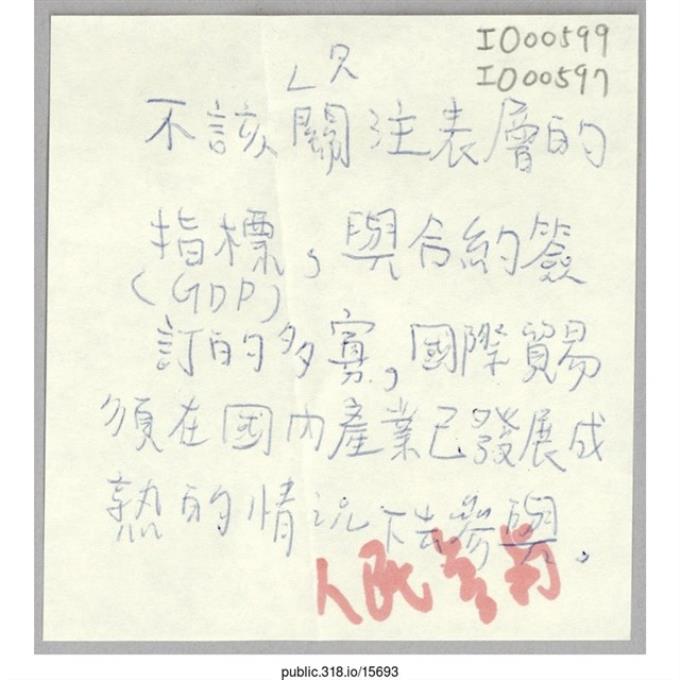 IO00599
IO00597
只
不該關注表層的
指標,與合約簽
(GDP)
訂的多寡,國際貿易
須在國內產業已發展成
熟的情況下去參與。
人民
public.318.io/15693